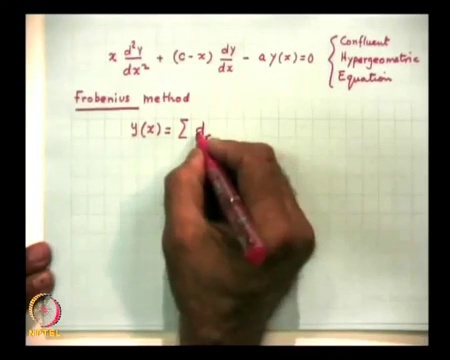 x d²y/dx² + (c-x) dy/dx - a y(x)=0 { Confluent Hypergeometric Equation
Frobenius method
y(x)= Σ dr
NPTEL